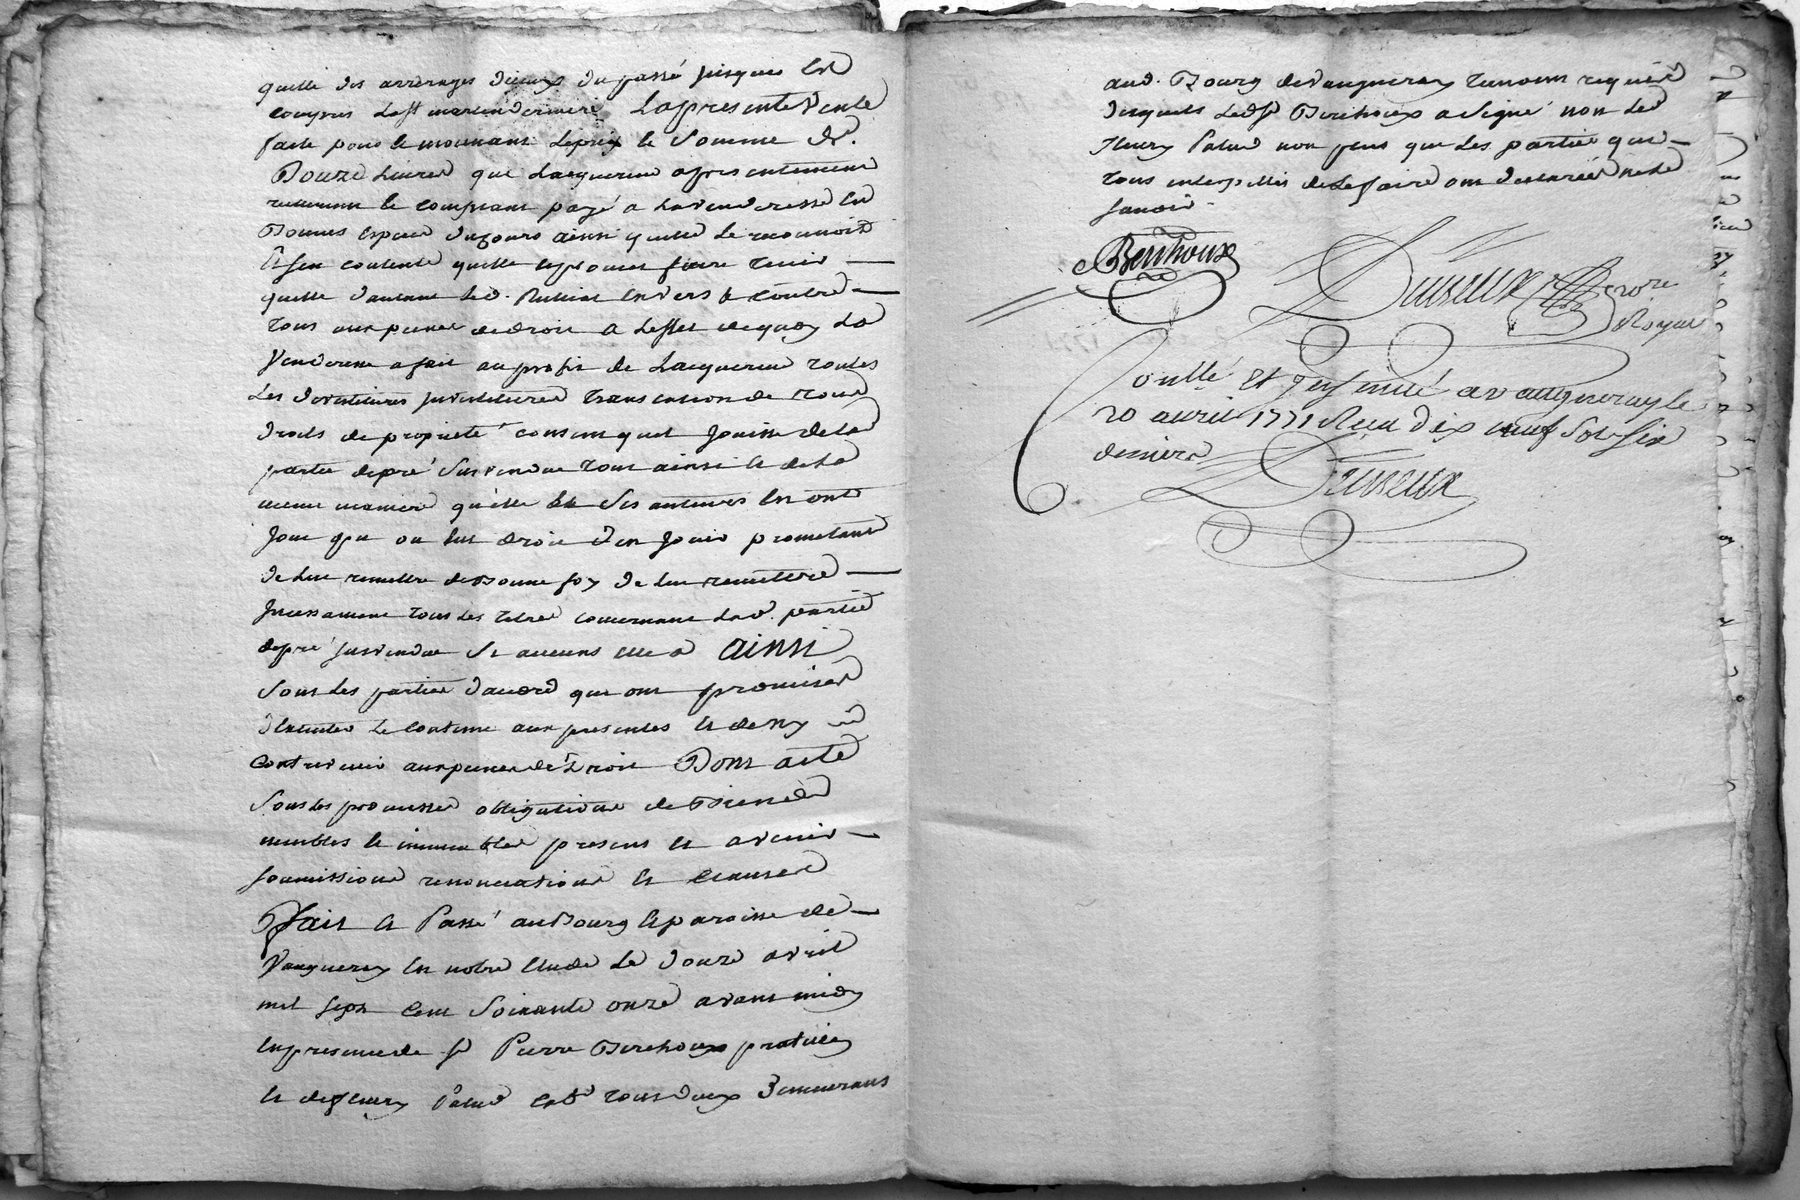 quitte des arrerages d'iceux du passé jusques Et
compris la st martin derniere La presente Vente
faite pour & moyenant Le prix & Somme De
Douze Livres que Lacquereur a presentement
reellement & comptant payé a la venderesse En
Bonnes espece du cours ainsi quelle Le reconnoit
Et sen contente quitte
quelle Envers & Contre
Tous aux peines de droit a Leffet de quoy La
Venderesse a fait au profit de Lacquereur toutes
Les devestitures investitures translation de tous
droits de proprieté consent quil Jouisse de la
partie de pré Susvendue tout ainsi & de la
meme maniere quelle & Ses auteurs En ont
Joui pu ou dut droit d'en Jouir prometant
de luy remettre de Bonne foy de luy remettre
Incessament tous Les titres concernant Lad. partie
de pré susvendue Si aucuns elle a ainsi
Sont Les parties d'accord qui ont promises
d'executer Le Contenu aux presentes & de ny
Contrevenir aux peines de Droit Dont acte
Sous les promesses obligations de Biens
meubles & immeubles presens & avenir
soumissions renonciations & clauses
ffait & Passé au Bourg & paroisse de
Vaugneray En notre Etude Le douze avril
mil sept cent Soixante onze avant midy
En presence de sr Pierre Berthoux praticien
& de fleury Palud tous deux Demeurans
aud. Bourg de Vaugneray temoins requis
desquels Led. sr Berthoux a Signé non Led
fleury Palud non plus que Les parties que
tous interpellés de Le faire ont declaréé ne le
savoir.
Berthoux
nore
Royal
Controllé Et Insinué a vaugneray le
20 avril 1771 Reçu dix neuf Sols six
deniers